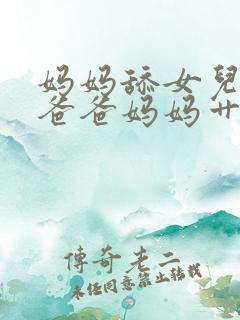 妈妈舔女兒
爸爸妈妈艹
傳奇老二
未任同意禁止转载